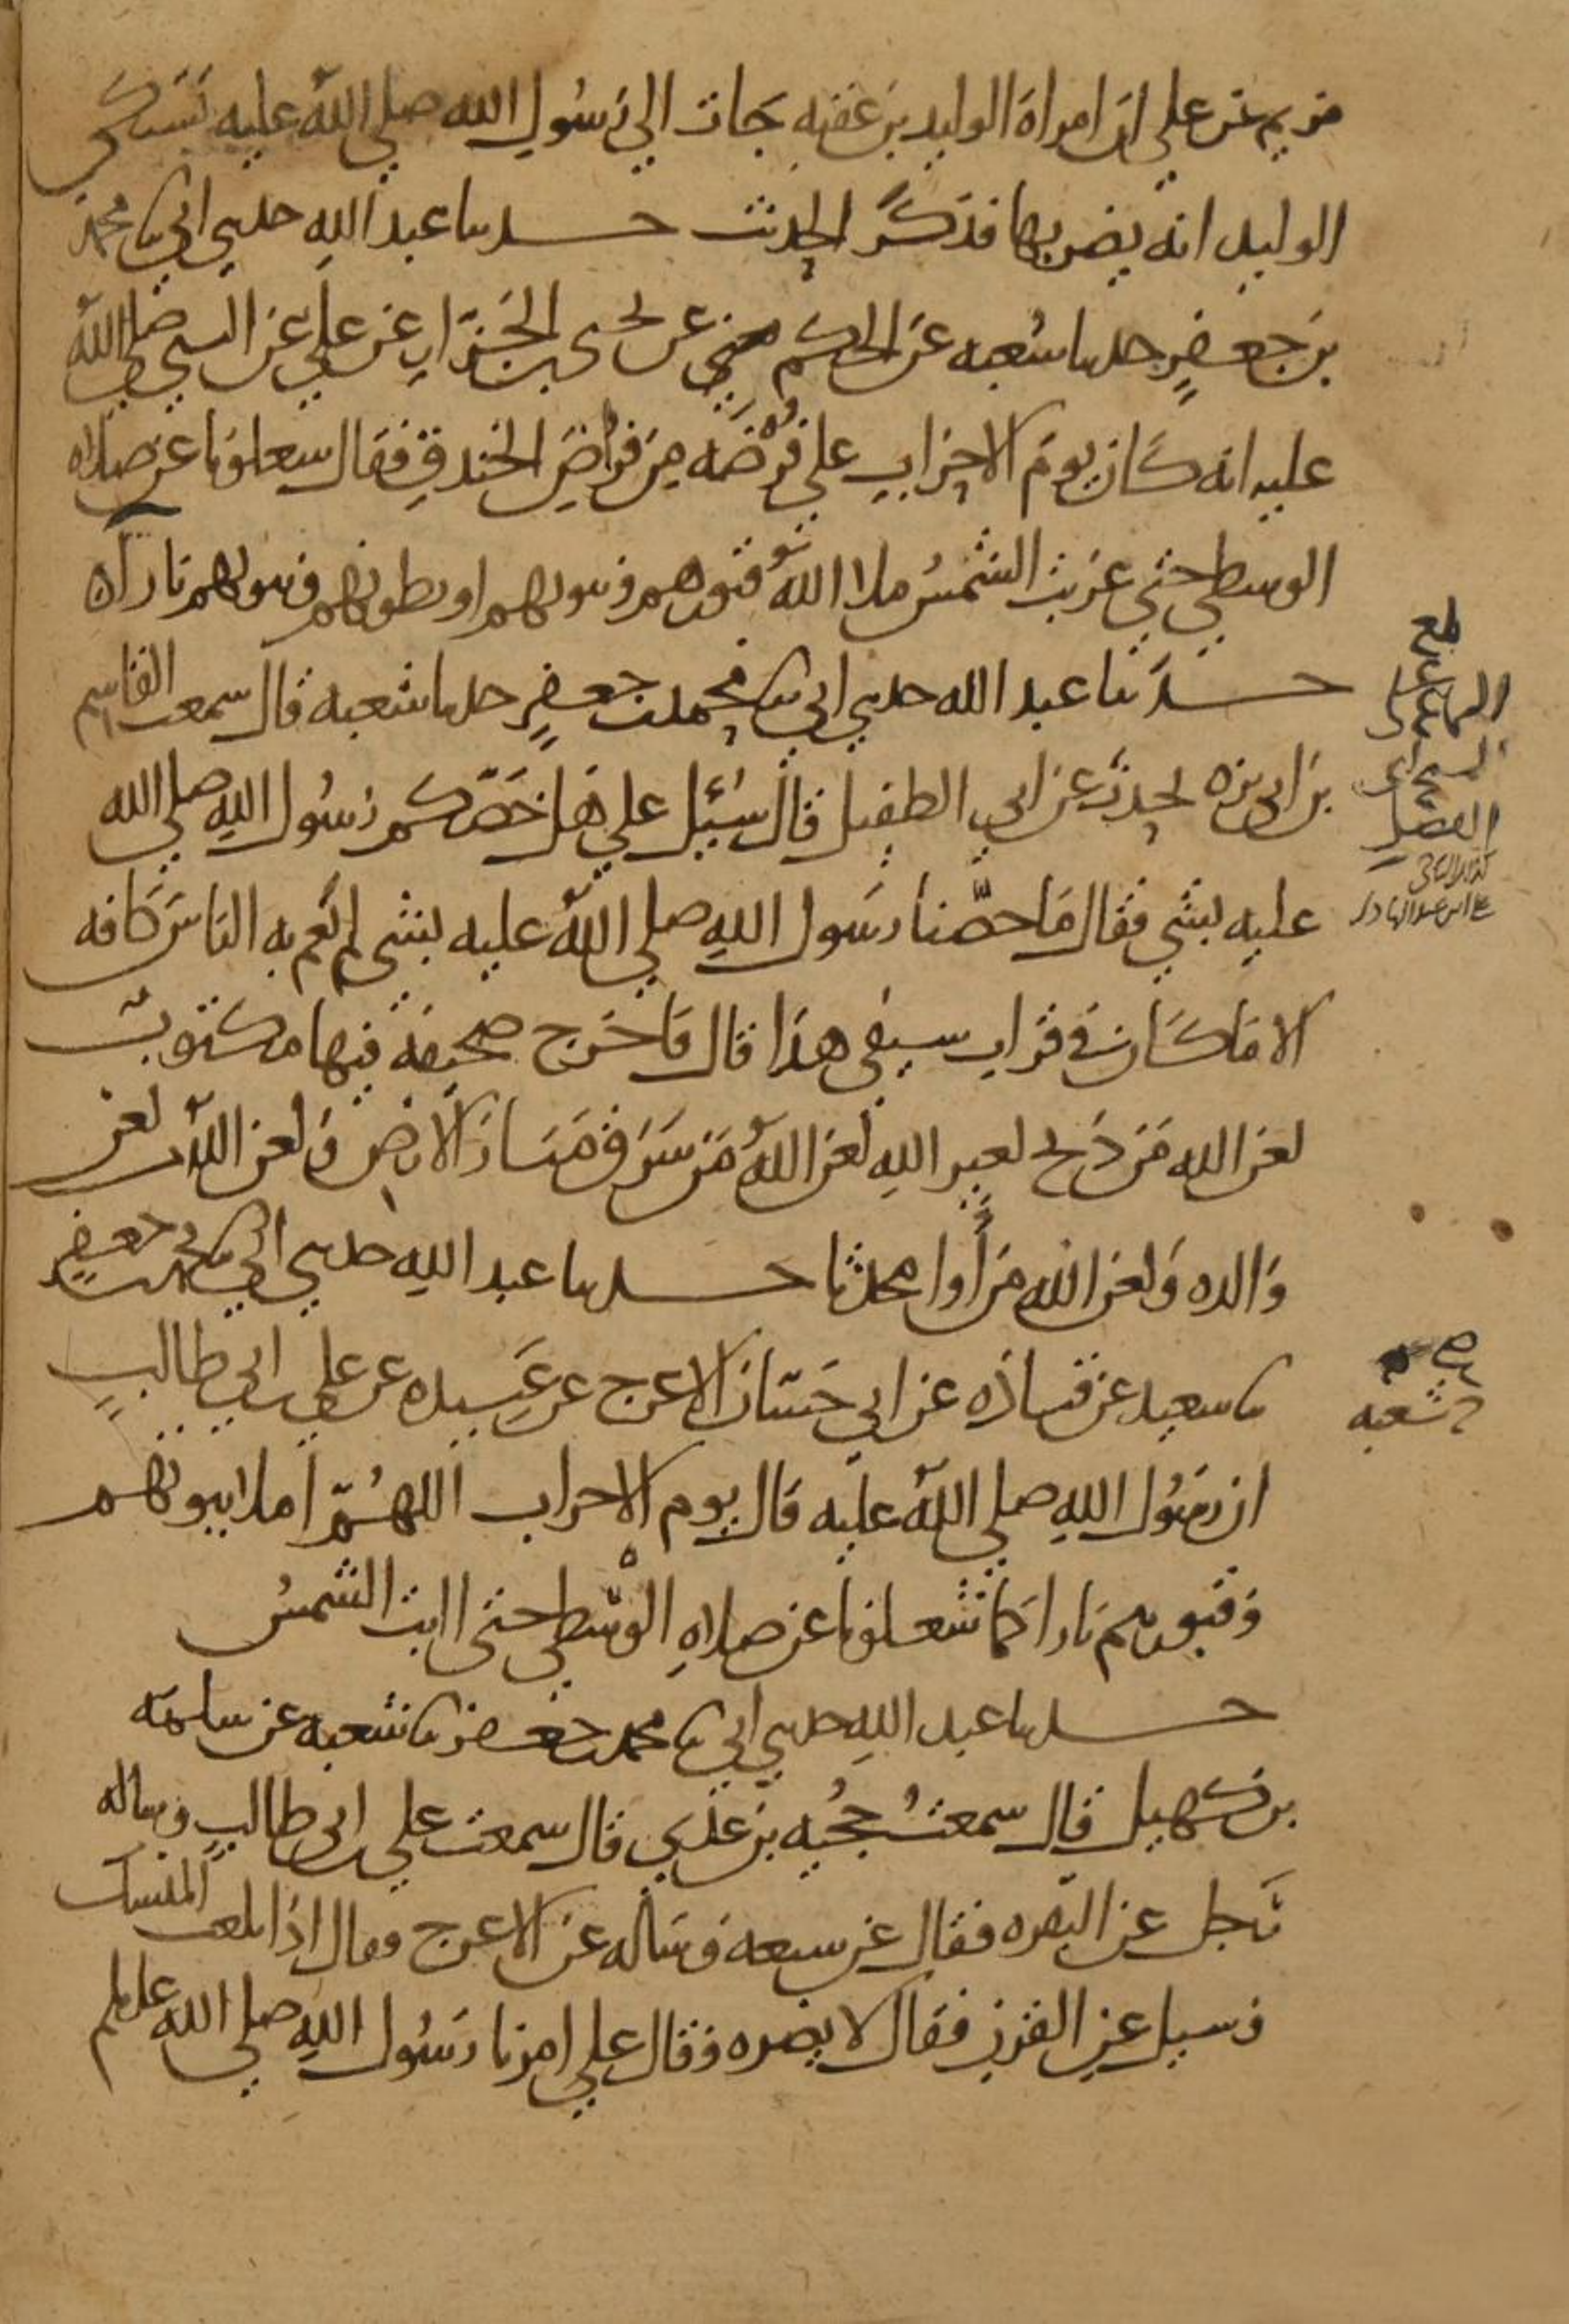 مريم عن علي ان امراة الوليد بن عقبه جات الي رسول الله صلي الله عليه تشتكي
الوليد انه يضربها فذكر الحديث حدثنا عبد الله حدثني ابي ثنا محمد
بن جعفر حدثنا شعبه عن الحكم عن يحيى بن الجزار عن علي عن النبي صلي الله
عليه انه كان يوم الاحزاب علي فرضه من فراض الخندق فقال شغلونا عن صلاه
الوسطي حتي غربت الشمس ملا الله قبورهم وبيوتهم او بطونهم وبيوتهم نارا
حدثنا عبد الله حدثني ابي ثنا محمد بن جعفر حدثنا شعبه قال سمعت القاسم
بن ابي بزه يحدث عن ابي الطفيل قال سئيل علي هل خصكم رسول الله صلي الله
عليه بشي فقال ما خصنا رسول الله صلي الله عليه بشي لم يعم به الناس كافه
الا ما كان في قراب سيفي هذا قال فاخرج صحيفة فيها مكتوب
لعن الله من ذبح لغير الله لعن الله من سرق منار الارض ولعن الله من لعن
والده ولعن الله من اوا محدثا حدثنا عبد الله حدثني ابي ثنا محمد بن جعفر
ثنا سعيد عن قتاده عن ابي حسان الاعرج عن عبيده عن علي بن ابي طالب
شعبه
ان رسول الله صلي الله عليه قال يوم الاحزاب اللهم املا بيوتهم
وقبورهم نارا كما شغلونا عن صلاه الوسطي حتى ابت الشمس
حدثنا عبد الله حدثني ابي ثنا محمد بن جعفر ثنا شعبه عن سلمه
بن كهيل قال سمعت حجيه بن عدي قال سمعت علي بن ابي طالب وساله
رجل عن البقره فقال عن سبعه وساله عن الاعرج وقال اذا بلغت المنسك
وسيل عن القرن فقال لا يضره وقال علي امرنا رسول الله صلي الله عليه